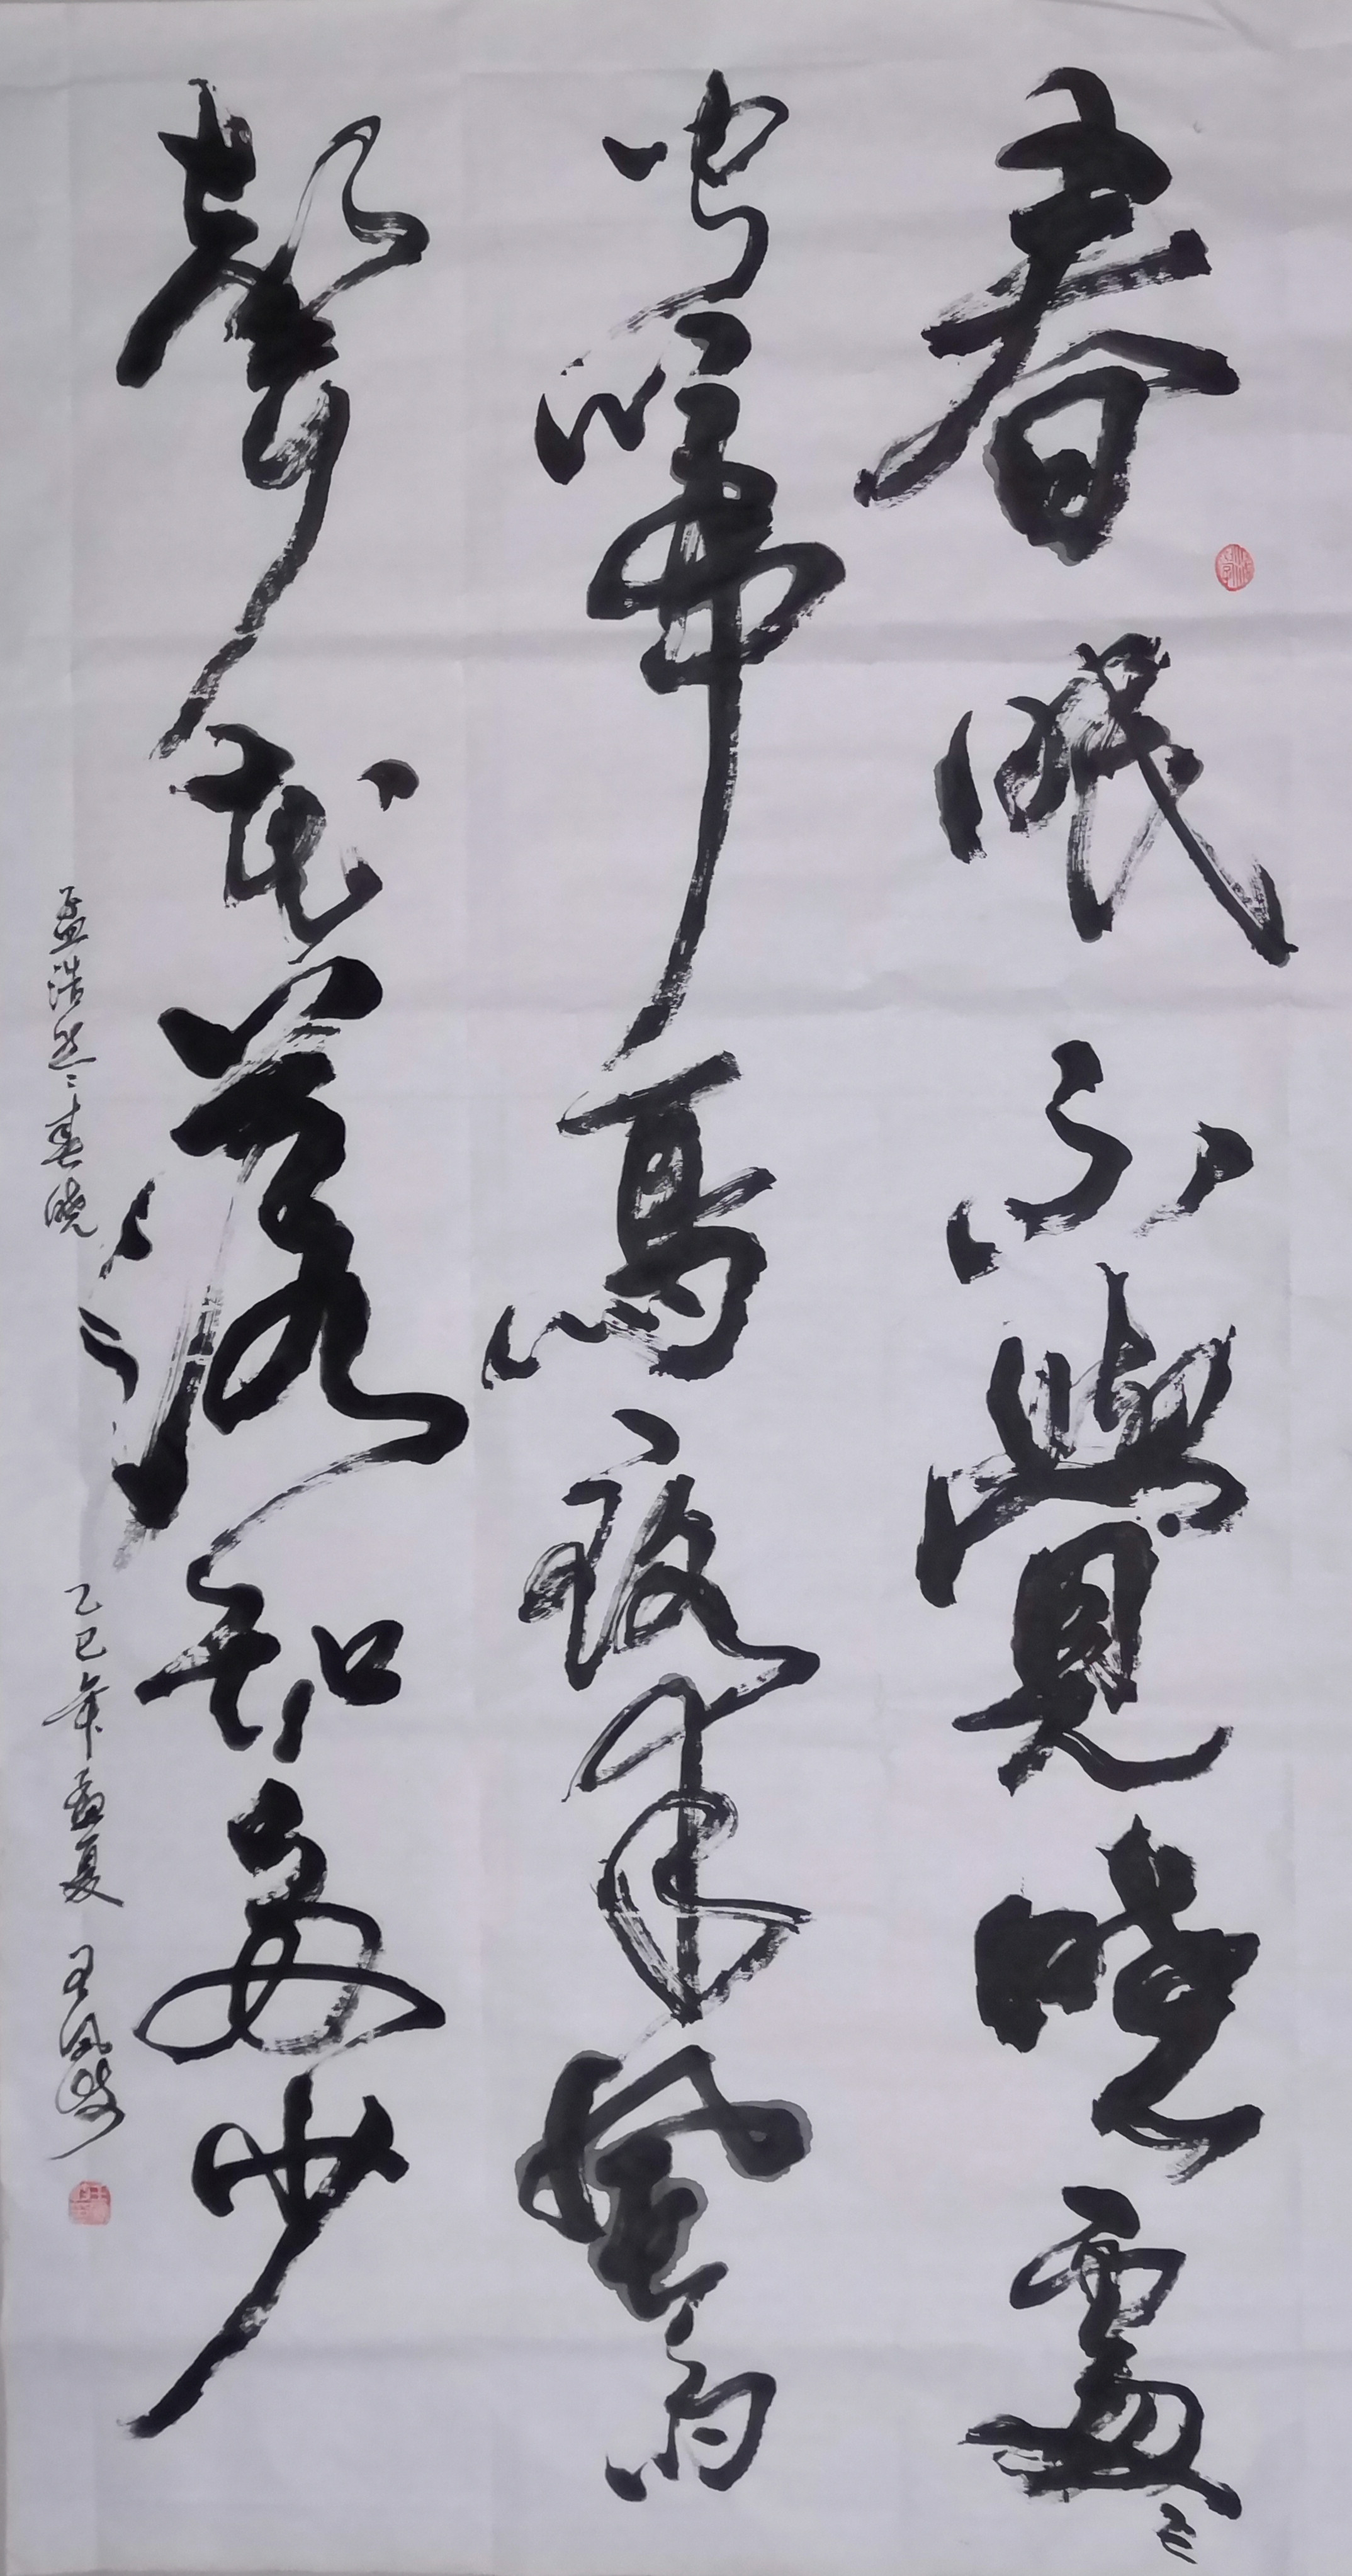 春眠不覺曉處〻
聞啼鳥夜來風雨
聲花落知多少
孟浩然〻春曉
乙巳年孟夏 王风